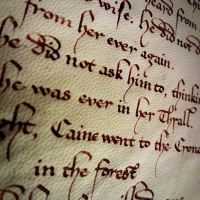 wise. he did not d
heard from
from her ever again.
he did not ask him to, thinki
he was ever in her Thrall.
ght, Caine went to the Crone
in the forest